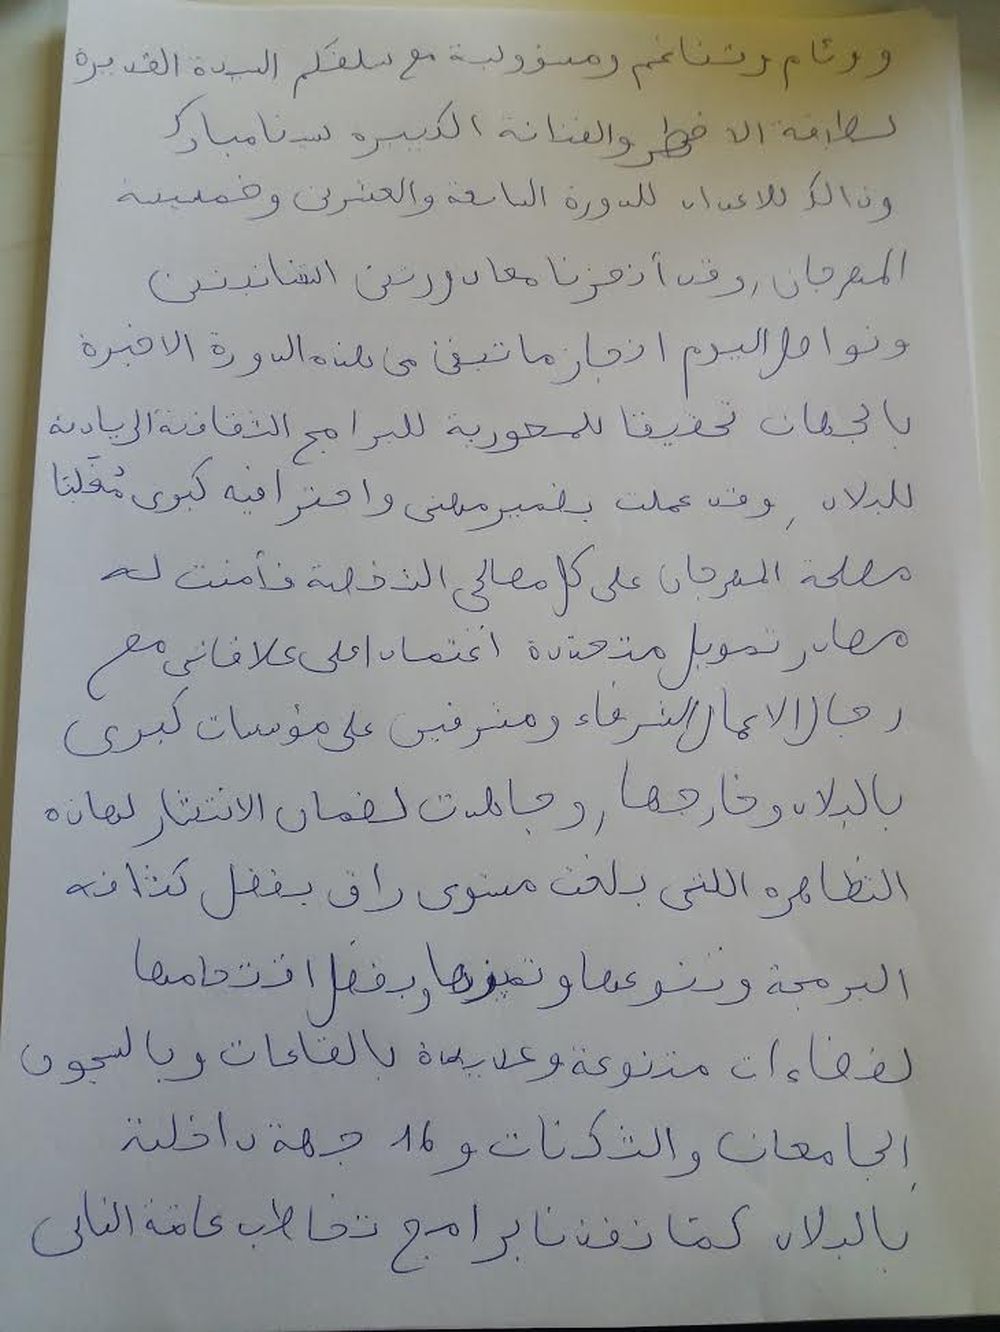 ووئام وتناغم ومسؤولية مع سلفكم السيدة القديرة
لطيفة الاخضر والفنانة الكبيرة سنا مبارك
وذالك للاعداد للدورة التاسعة والعشرين وخمسينية
المهرجان, وقد أنجزنا معا دورتين
ونواصل اليوم انجاز ما تبقى من هذه الدورة الاخيرة
بالجهات تحقيقا للمحورية للبرامج الثقافية الريادية
للبلاد, وقد عملت بضمير مهني واحترافيه كبرى مُغلبا
مصلحة المهرجان على كل مصالحي الشخصية فأمنت له
مصادر تمويل متعددة اعتمادا على علاقاتي مع
رجال الاعمال الشرفاء ومشرفين على مؤسسات كبرى
بالبلاد وخارجها, وجاهدت لضمان الانتشار لهاذه
التظاهره اللتي بلغت مستوى راق بفضل كثافه
البرمجة وتنوعها وتميزها وبفضل اقتحامها
لفضاءات متنوعة وعديدة بالقاعات وبالسجون
الجامعات والثكنات و16 جهة داخلية
بالبلاد كما نفذنا برامج تخاطب عامة الناس